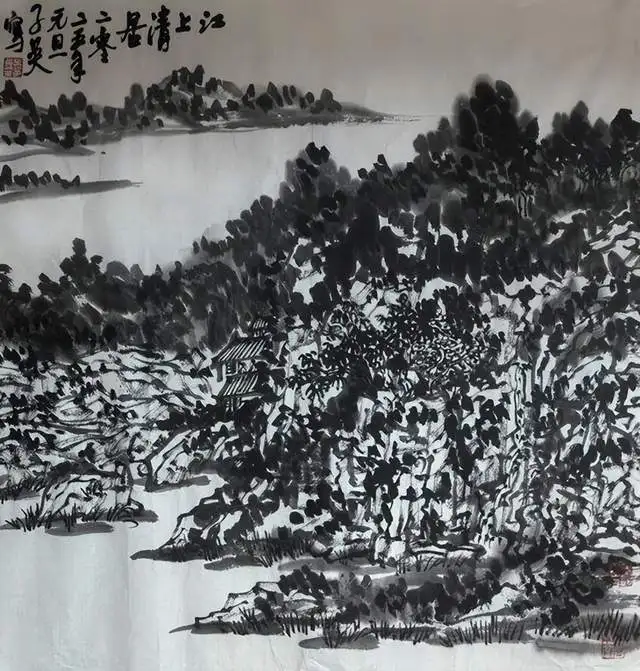 江上清居
二零
二五年
元旦
子
寫